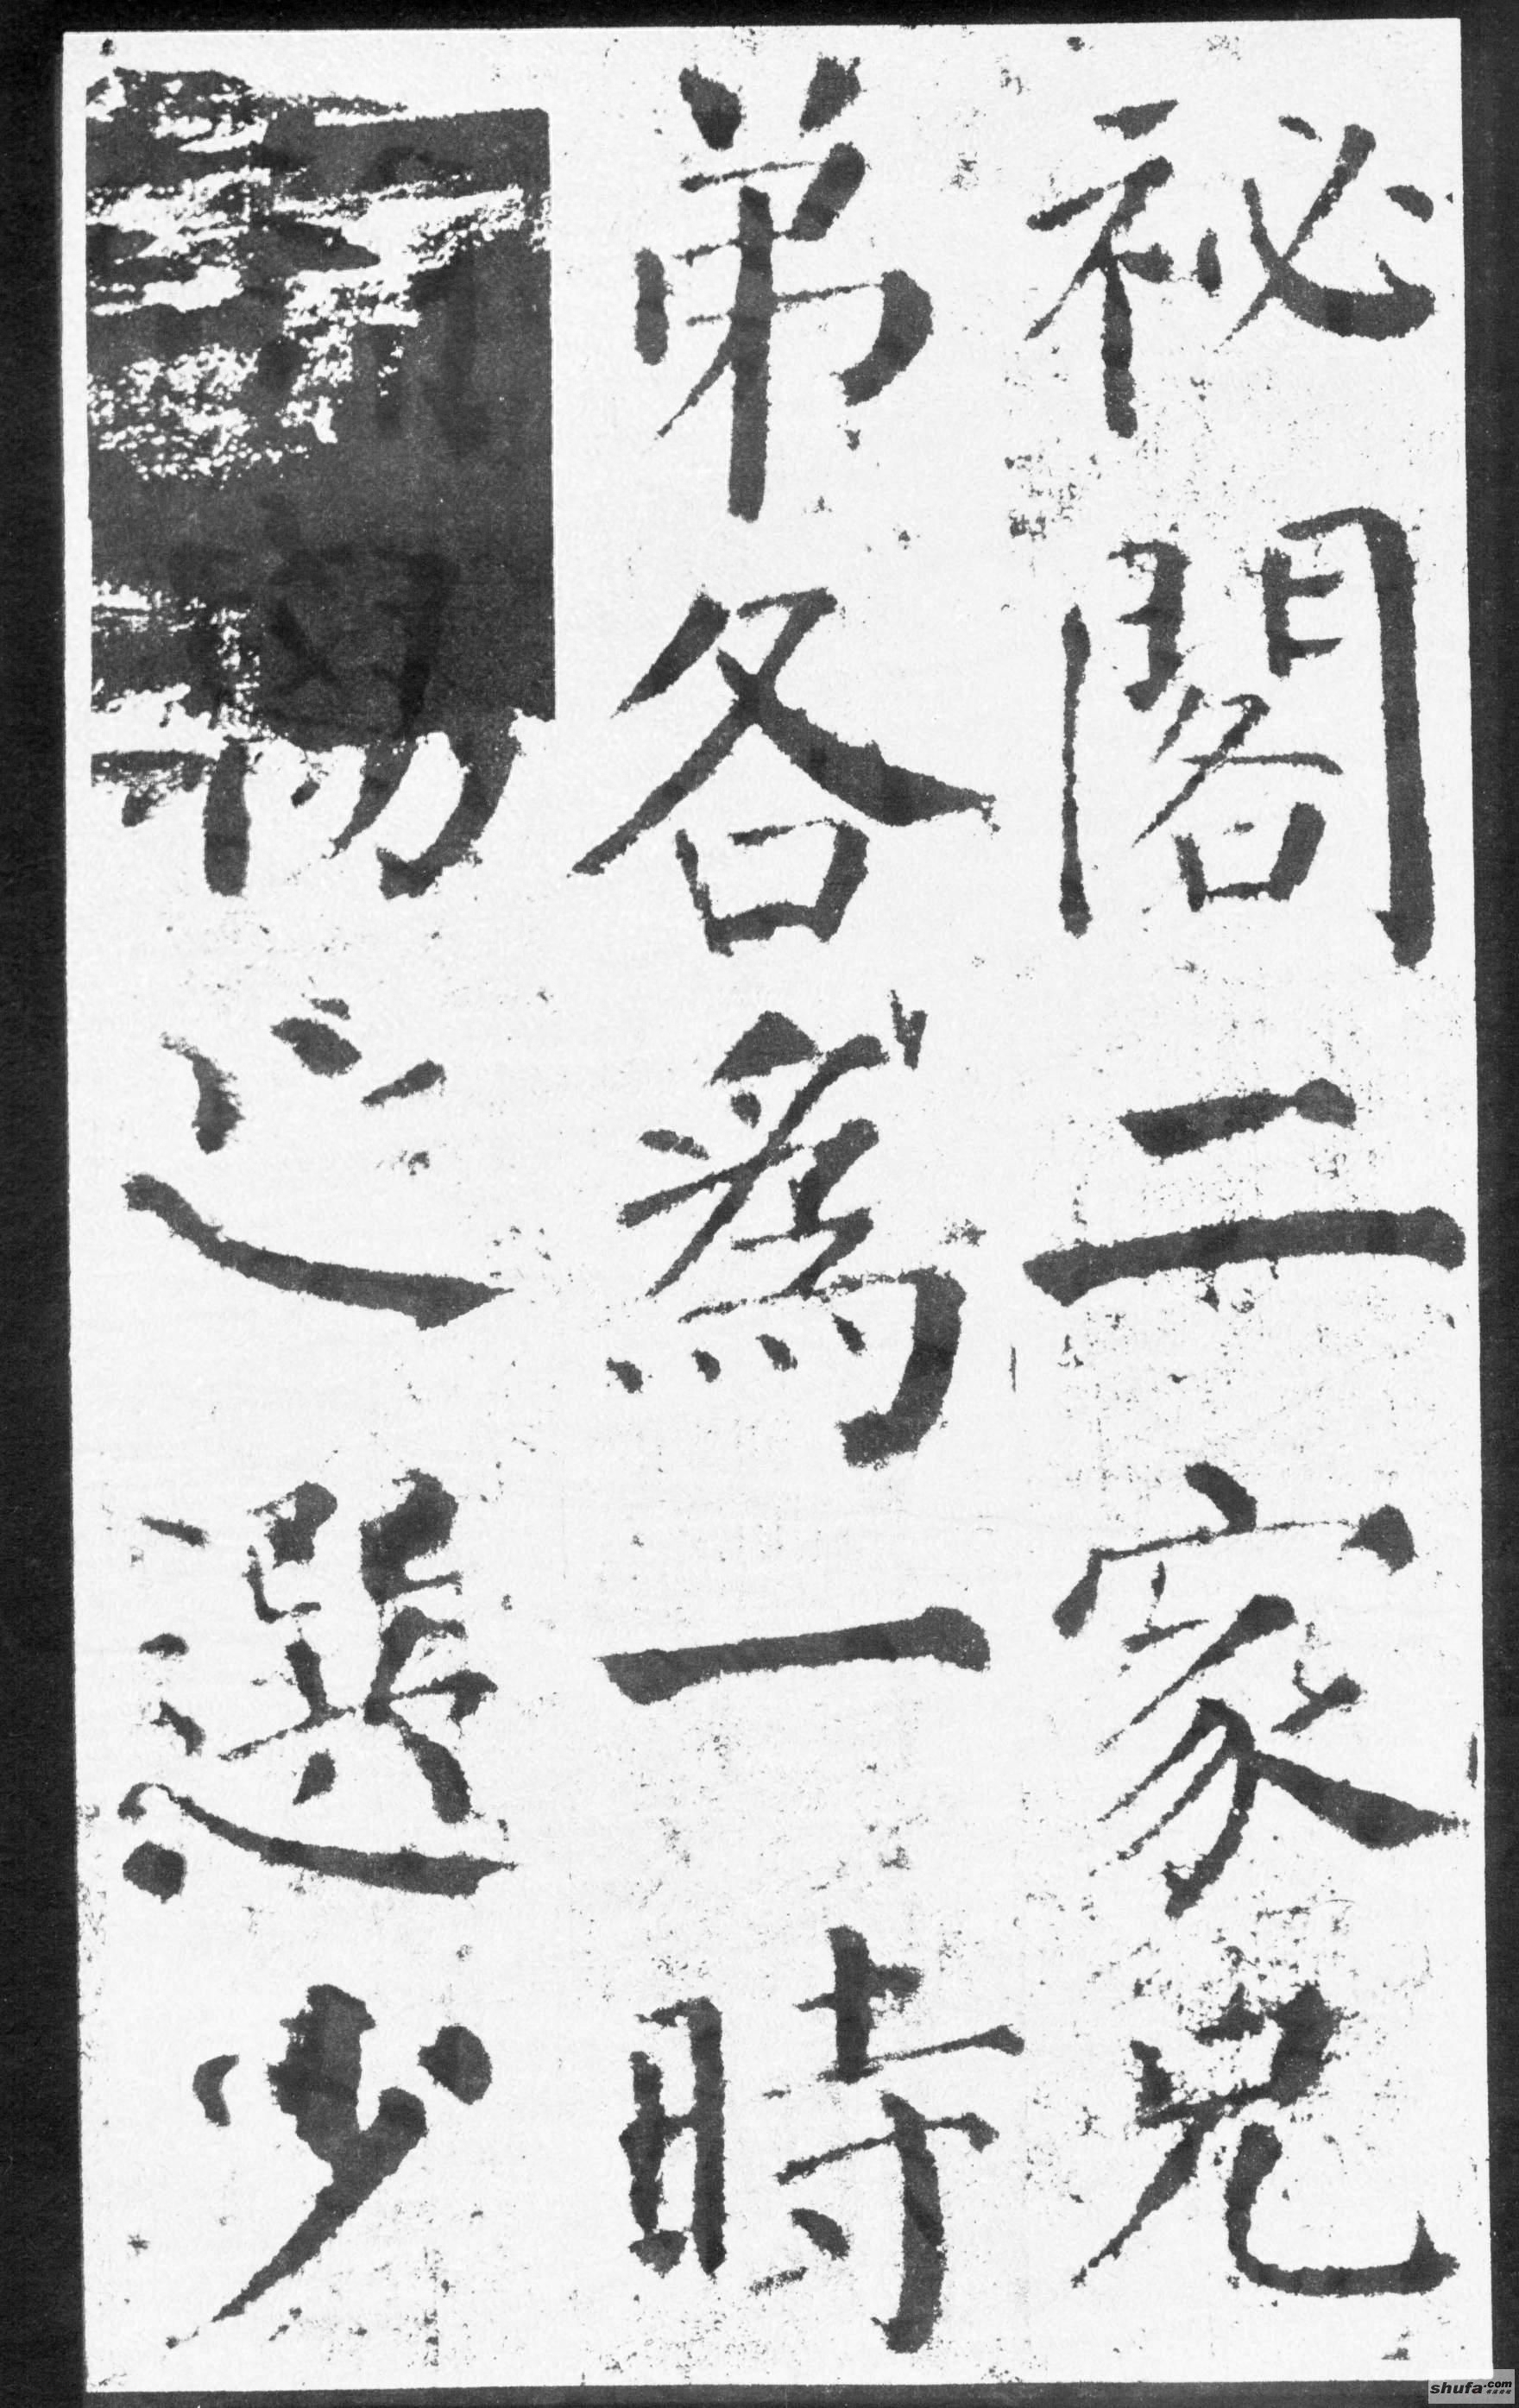 祕閣二家兄
弟各爲一時
物之選少
shufa.com